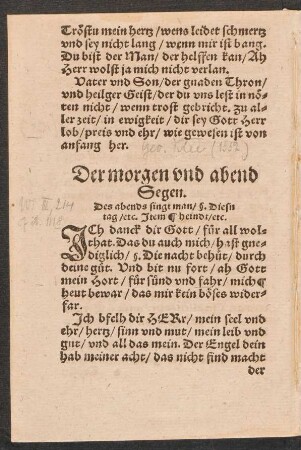 Tröstu mein hertz/wens leidet schmertz
vnd sey nicht lang/wenn mir ist bang.
Du bist der Man/der helffen kan/Ah
Herr wolst ja mich nicht verlan.
Vater vnd Son/der gnaden Thron/
vnd heilger Geist/der du vns lest in nö-
ten nicht/wenn trost gebricht. zu al-
ler zeit/in ewigkeit/dir sey Gott Herr
lob/preis vnd ehr/wie gewesen ist von
anfang her.
Der morgen vnd abend
Segen.
Des abends singt man/§. Diesn
tag/etc. Item ¶ heindt/etc.
ICh danck dir Gott/für all wol-
that. Das du auch mich/hast gne-
diglich/§. Die nacht behüt/durch
deine güt. Vnd bit nu fort/ah Gott
mein Hort/für sünd vnd fahr/mich ¶
heut bewar/das mir kein böses wider-
far.
Ich bfelh dir HERr/mein seel vnd
ehr/hertz/sinn vnd mut/mein leib vnd
gut/vnd all das mein. Der Engel dein
hab meiner acht/das nicht find macht
der